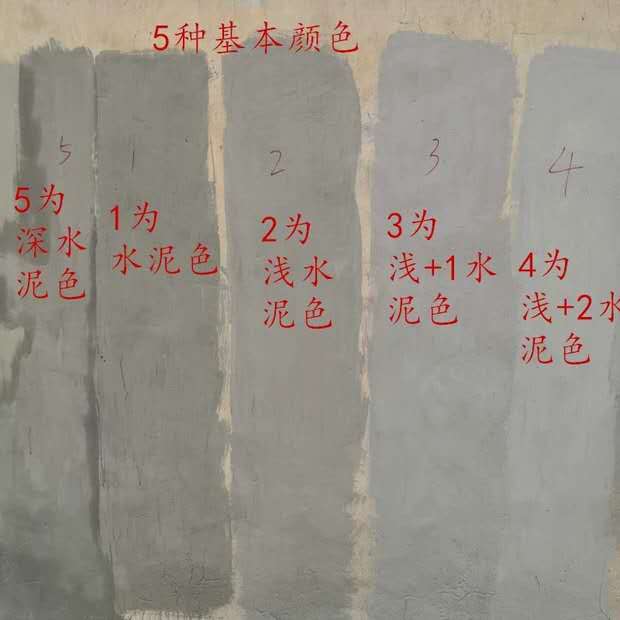 5种基本颜色
5 1 2 3 4
5为
深水
泥色
1为
水泥色
2为
浅水
泥色
3为
浅+1水
泥色
4为
浅+2水
泥色